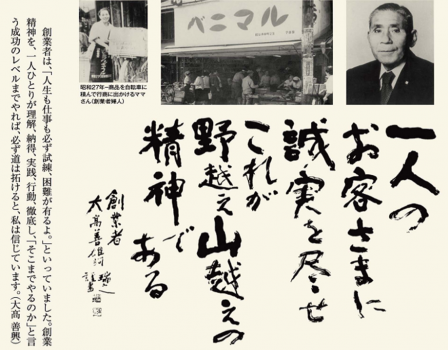 ベニマル
昭和27年―商品を自転車に
積んで行商に出かけるママ
さん(創業者婦人)
一人の
お客さまに
誠実を尽せ
これが
野越え山越えの
精神で
ある
創業者
大高善雄
創業者は、「人生も仕事も必ず試練、困難が有るよ。」といっていました。創業
精神を、一人ひとりが理解、納得、実践、行動、徹底し、「そこまでやるのか」と言
う成功のレベルまでやれば、必ず道は拓けると、私は信じています。(大髙 善興)